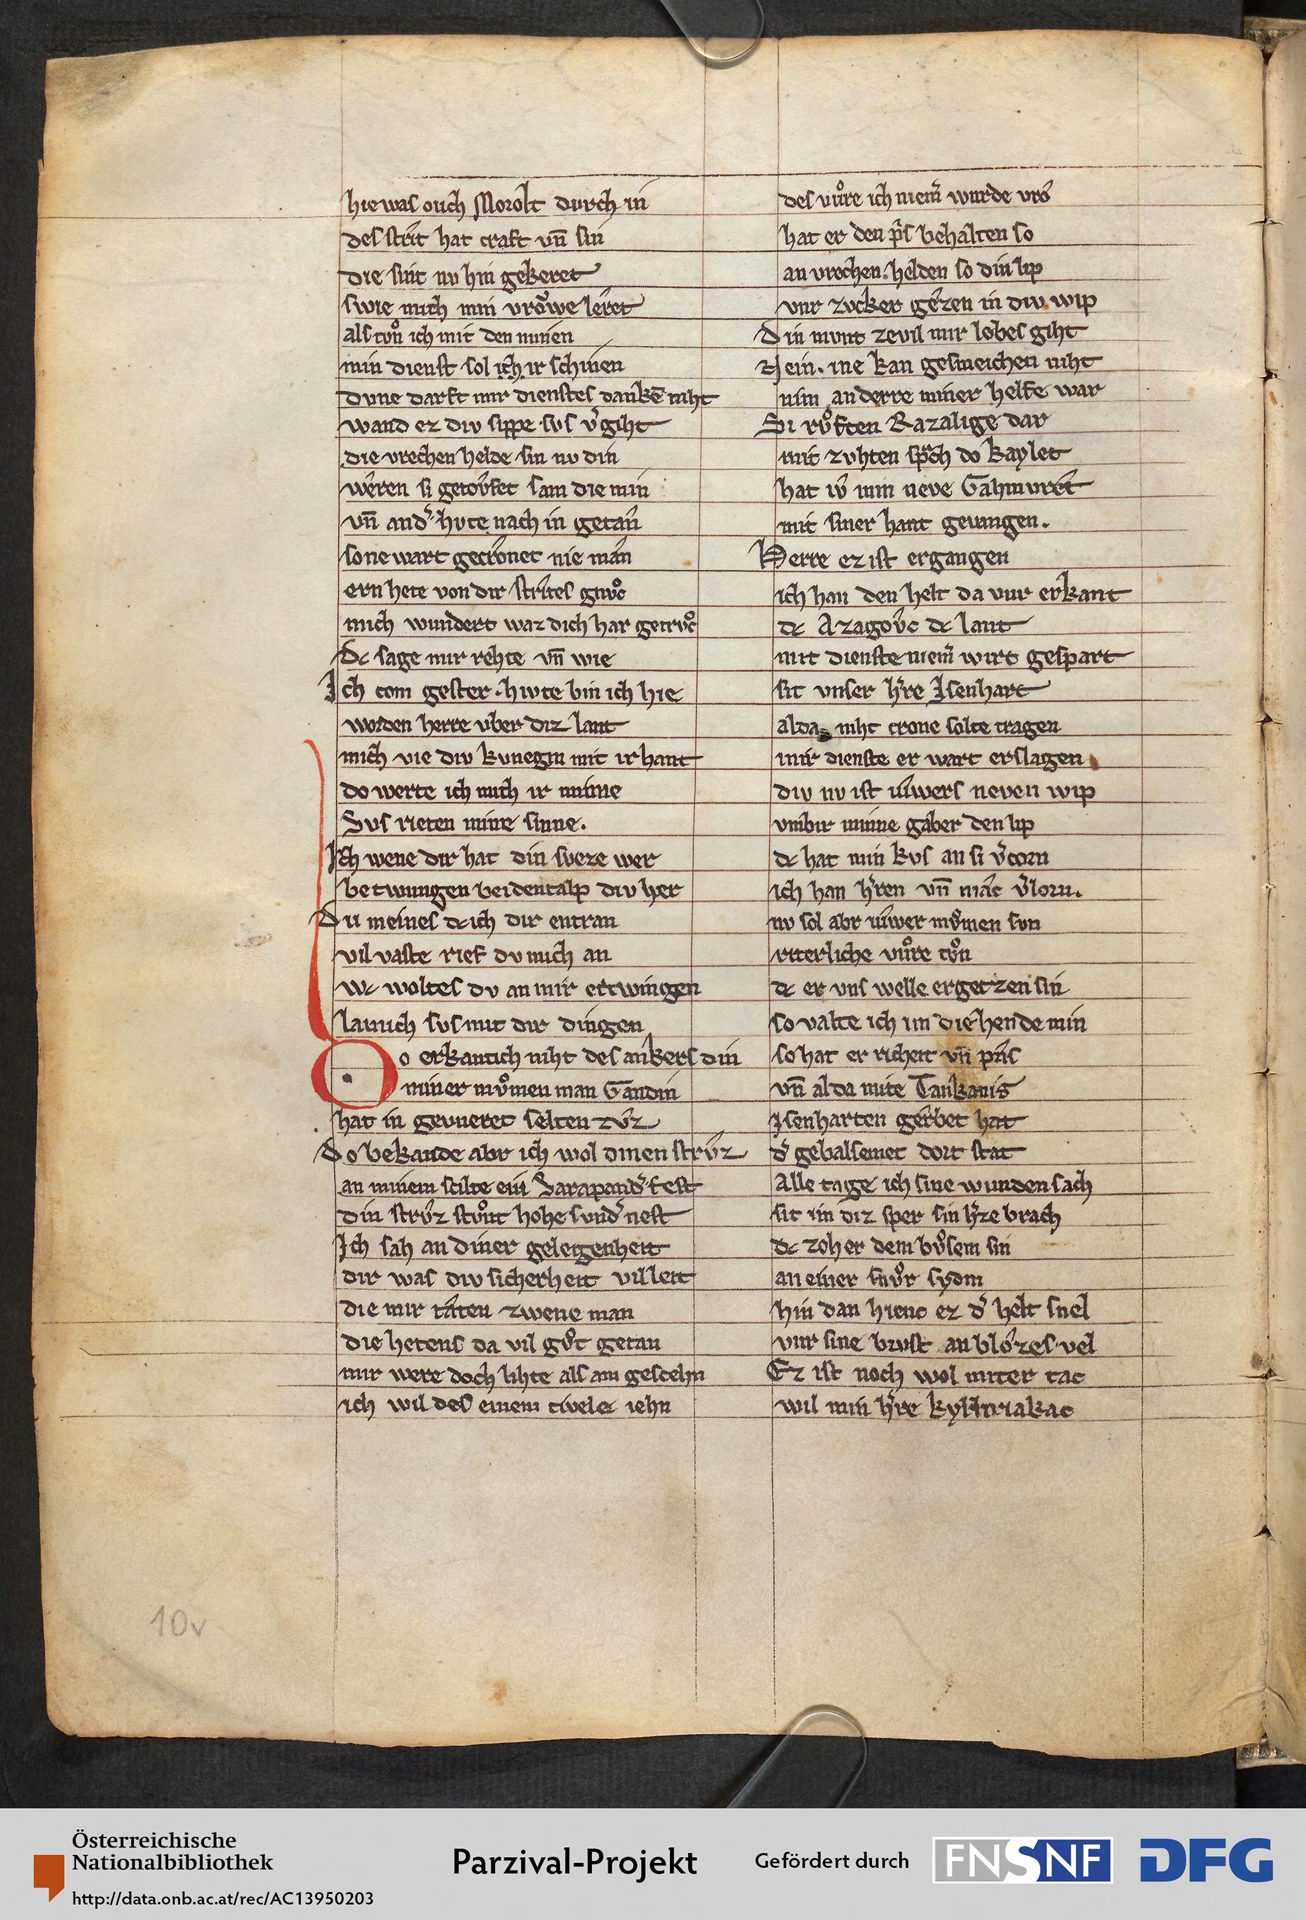 hie was ouch Morolt durch in
des strit hat craft vn̄ sin
die sint nv hin gekeret
swie mich min vrowe leret
als tvͦn ich mit den minen
min dienst sol ich ir schinen
dvne darft mir dienstes dankē niht
wand ez div sippe svs v͛giht
die vrechen helde sin nv din
weren si getovfet sam die min
vn̄ and͛ hvte nach in getan
sone wart gecronet nie man
ern hete von dir strites gnvͦc
mich wundert waz dich har getrvͦc
dc sage mir rehte vn̄ wie
Ich com gester. hivte bin ich hie
worden herre vber diz lant
mich vie div kvnegin mit ir hant
do werte ich mich ir minne
Svs rieten mine sinne.
Ich wene dir hat din sveze wer
betwungen beidentalp div her
Du meines dc ich dir entran
vil vaste rief dv mich an
wc woltes dv an mir ertwingen
la mich svs mit dir dingen
Do erkantich niht des ankers din
miner mvͦmen man Gandin
hat in gevueret selten vz
Do bekande abr ich wol dinen strvz
an minem scilte ein Sarapand͛ fest
din strvz stvͦnt hohe svnd͛ nest
Ich sah an diner gelegenheit
dir was div sicherheit vil leit
die mir taten zwene man
die hetens da vil gvͦt getan
mir were doch lihte als am gestehn
ich wil des einem tivele iehn
des vuͦre ich niem͛ wurde vro
hat er den pris behalten so
an vrechen helden so din lip
vur zvcker gezen in div wip
Din munt zevil mir lobes giht
Nein. ine kan gesmeichen niht
nim anderre miner helfe war
Si rvͦften Razalige dar
mit zvhten sprach do kaylet
hat iv min neve Gahmuret
mit siner hant gevangen.
Herre ez ist ergangen
ich han den helt da vur erkant
dc Azagovc dc lant
mit dienste niem͛ wirt gespart
sit vnser h͛re Isenhart
alda niht crone solte tragen
in ir dienste er wart erslagen
div nv ist iuwers neven wip
vmb ir minne gaber den lip
dc hat min kvs an si v͛corn
ich han h͛ren vn̄ mac v͛lorn.
nv sol abr iuwer mvͦmen svn
riterliche vuͦre tvͦn
dc er vns welle ergetzen sin
so valte ich im die hende min
so hat er richeit vn̄ pris
vn̄ alda mite Tankanis
Isenharten gerbet hat
d͛ gebalsemet dort stat
Alle tage ich sine wunden sach
sit im diz sper sin h͛ze brach
dc zoh er dem bvͦsem sin
an einer snvͦr sydin
hin dan hienc ez d͛ helt snel
vur sine brust an blozes vel
Ez ist noch wol miter tac
wil min h͛re kyllirriakac
10v
Österreichische
Nationalbibliothek
http://data.onb.ac.at/rec/AC13950203
Parzival-Projekt
Gefördert durch
FNSNF
DFG